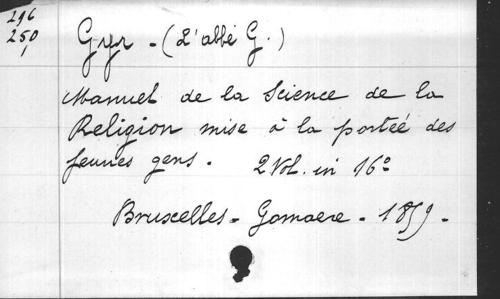 296
250
1
Gyr - (L'abbé G.)
Manuel de la Science de la
Religion mise à la porteé des
jeunes gens. 2 Vol. in 16º
Bruxelles - Gomaere - 1859 -